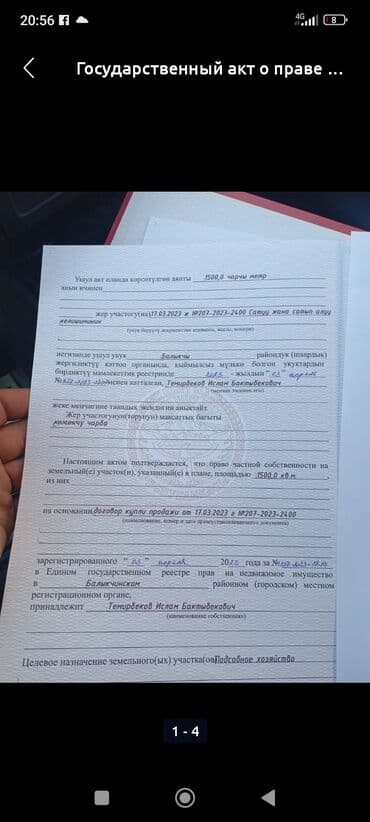 20:56
4G
8
Государственный акт о праве ...
Ушул акт планда көрсөтүлгөн аянты 1500,0 чарчы метр
анын ичинен
жер участогу(на) 17.03.2023 ж №207-2023-2400 Сатуу жана сатып алуу
келишиминин
негизинде ушул укук Балыкчы райондук (шаардык)
жергиликтүү каттоо органында, кыймылсыз мүлккө болгон укуктардын
бирдиктүү мамлекеттик реестринде 2023 - жылдын "03" апрели
менен катталган, Темирбеков Ислам Бактыбекович
жеке менчигине таандык экендигин аныктайт.
Жер участогунун(торунун) максаттык багыты
көмөкчү чарба
Настоящим актом подтверждается, что право частной собственности на
земельный(е) участок(и), указанный(е) в плане, площадью 1500,0 кв.м
из них
на основании договор купли продажи от 17.03.2023 г №207-2023-2400
(наименование, номер и дата правоустанавливающего документа)
зарегистрированного "03" апреля 2023 года за №
в Едином государственном реестре прав на недвижимое имущество
в Балыкчинском районном (городском) местном
регистрационном органе,
принадлежит Темирбеков Ислам Бактыбекович
(наименование собственника)
Целевое назначение земельного(ых) участка(ов) Подсобное хозяйство
1 - 4